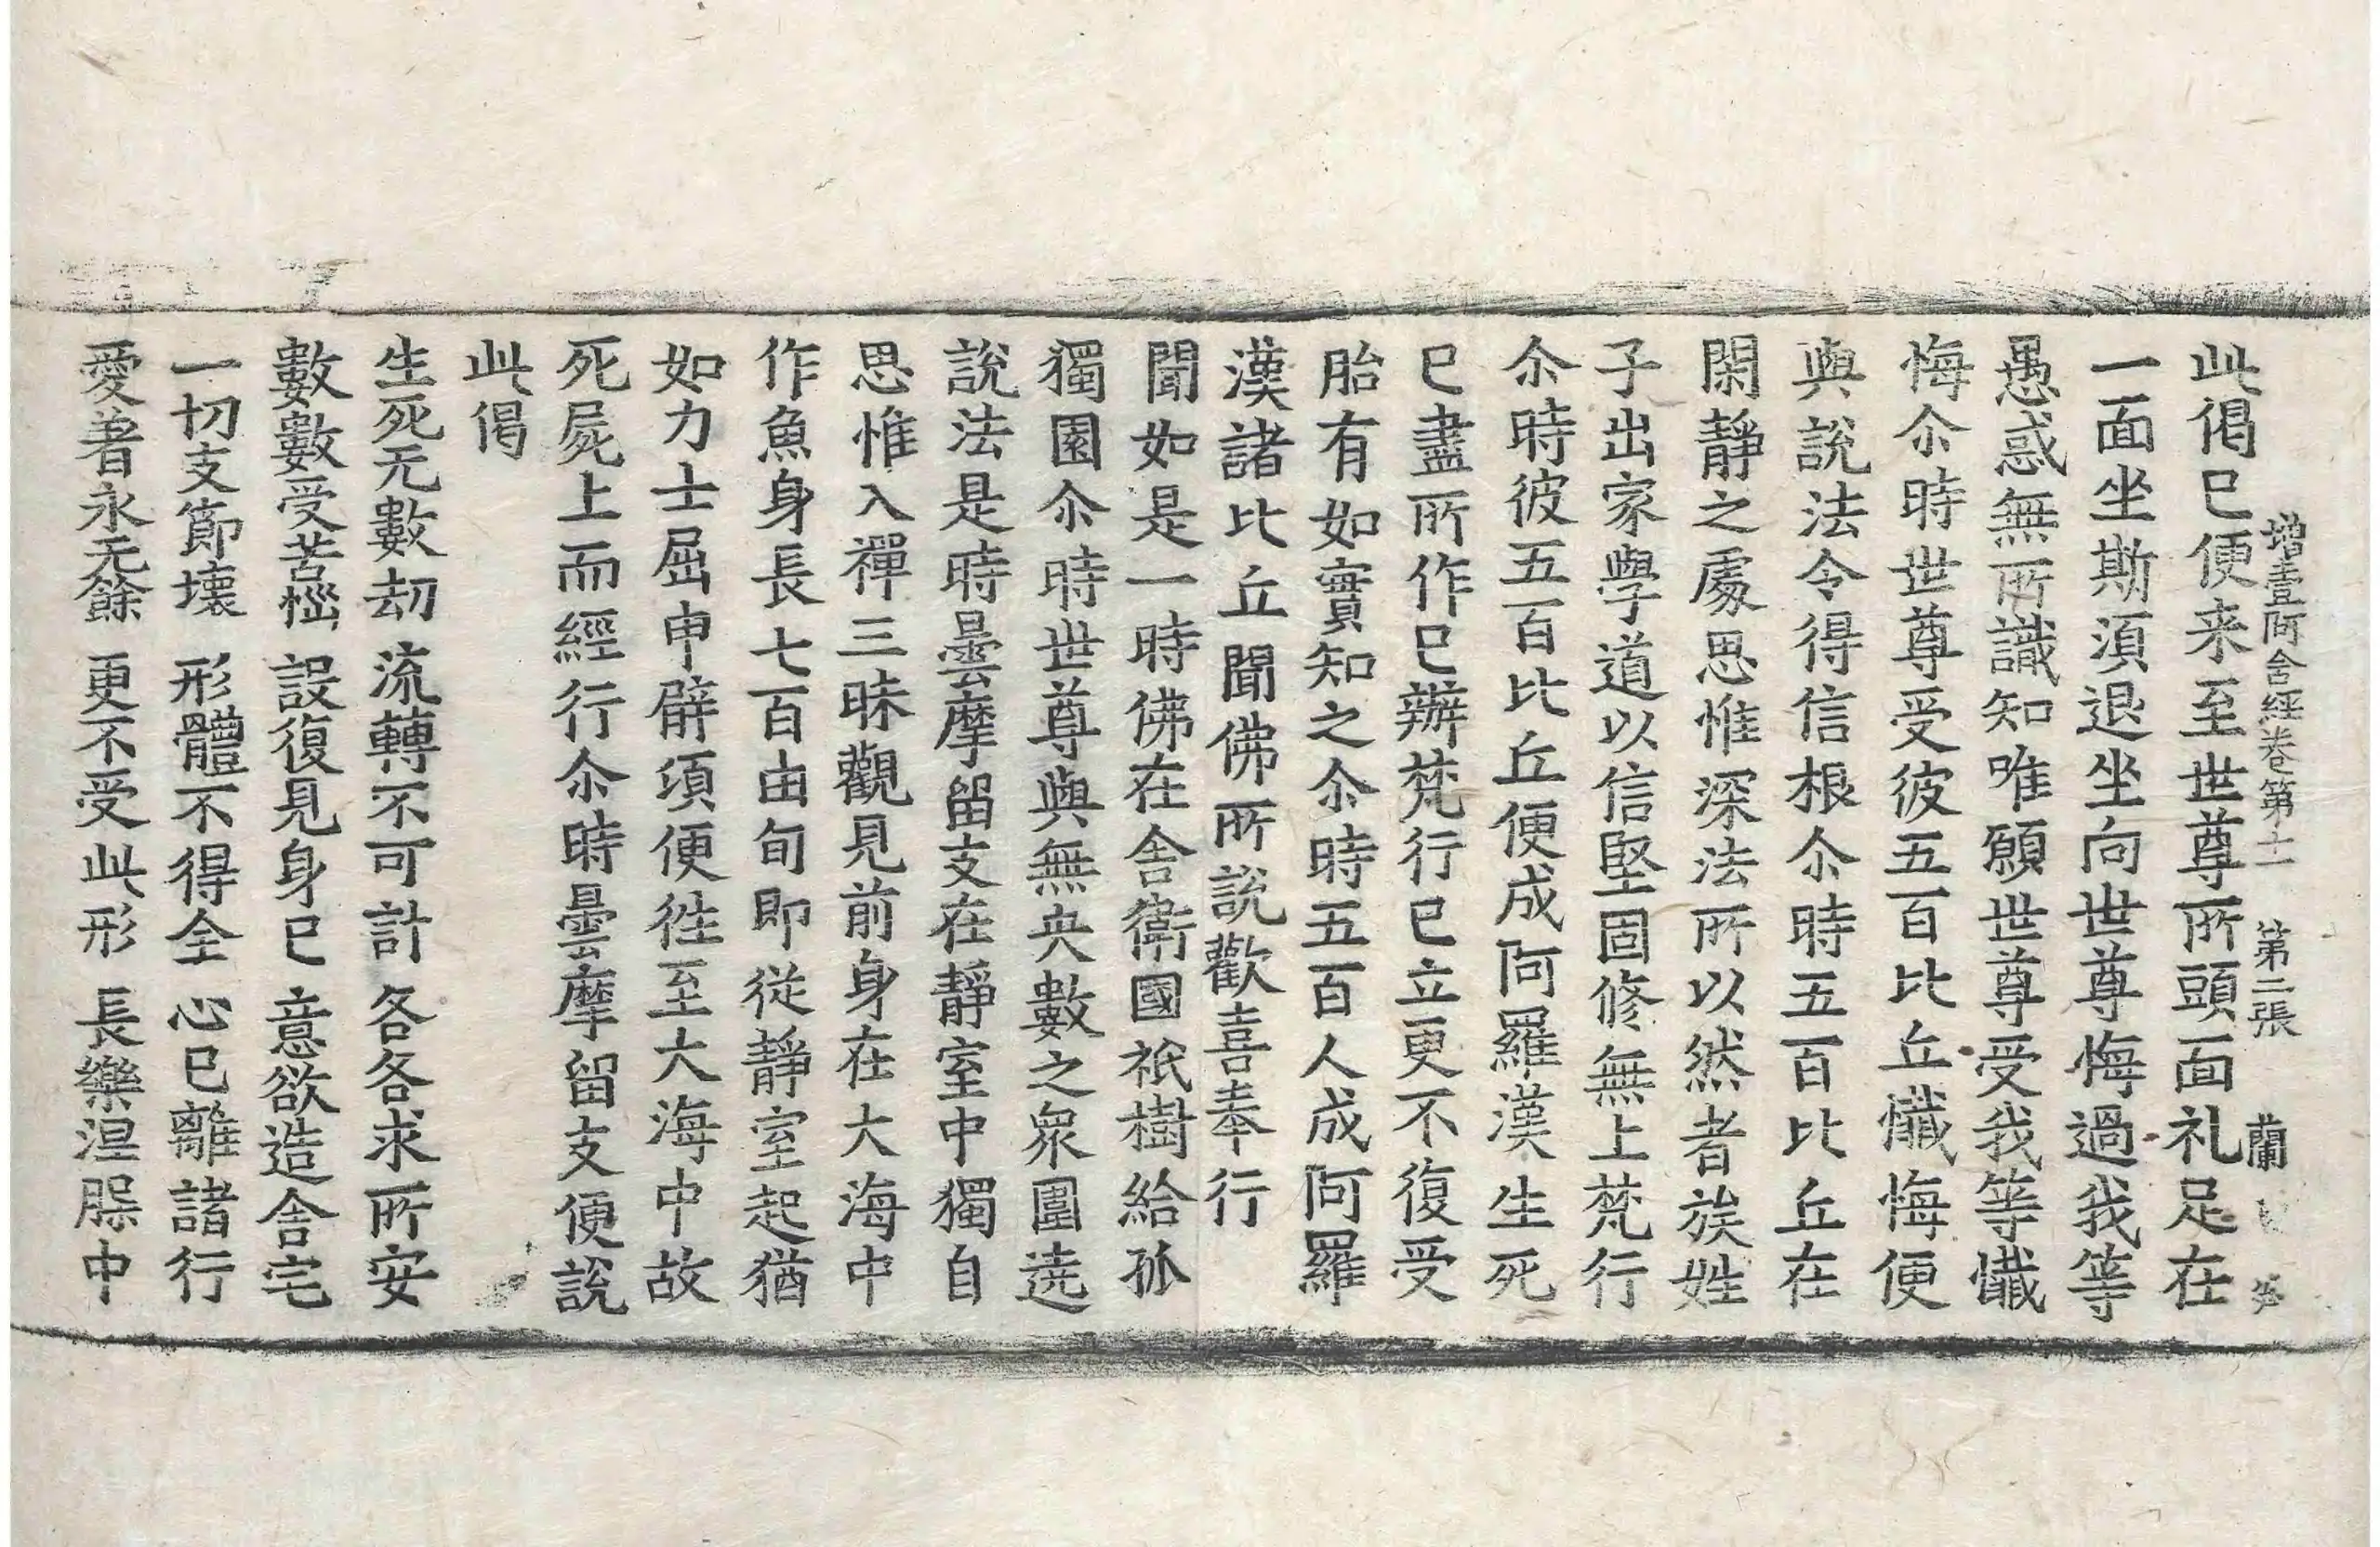 增壹阿含經卷第十一　第二張　蘭
此偈已便来至世尊所頭面礼足在
一面坐斯湏退坐向世尊悔過我等
愚惑無所識知唯願世尊受我等懺
悔尒時世尊受彼五百比丘懺悔便
與說法令得信根尒時五百比丘在
閑靜之處思惟深法所以然者族姓
子出家學道以信堅固修無上梵行
尒時彼五百比丘便成阿羅漢生死
已盡所作已辦梵行已立更不復受
胎有如實知之尒時五百人成阿羅
漢諸比丘聞佛所說歡喜奉行
聞如是一時佛在舍衛國祇樹給孤
獨園尒時世尊與無央數之衆圍遶
說法是時曇摩留支在靜室中獨自
思惟入禪三昧觀見前身在大海中
作魚身長七百由旬即從靜室起猶
如力士屈申臂項便徃至大海中故
死屍上而經行尒時曇摩留支便說
此偈
生死无數劫　流轉不可計　各各求所安
數數受苦惱　設復見身已　意欲造舍宅
一切支節壞　形體不得全　心已離諸行
愛著永无餘　更不受此形　長樂涅槃中